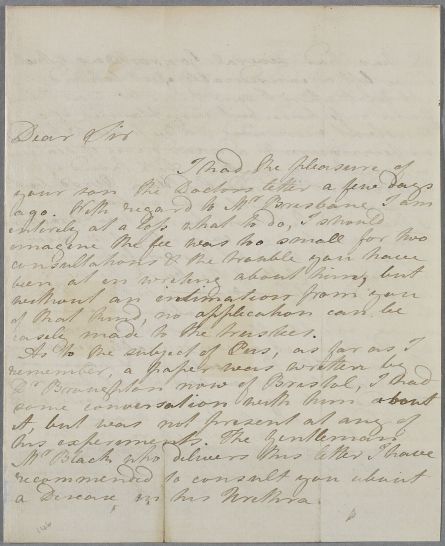 Dear Sir
I had the pleasure of
your son the Doctors letter a few days
ago. With regard to Mr Brisbane, I am
entirely at a loss what to do, I should
imagine the fee was too small for two
consultations & the trouble you have
been at in writing about him, but
without an intimation from you
of that kind, no application can be
easily made to the trustees.
As to the subject of Pus, as far as I
remember, a paper was written by
Dr now of Bristol, I had
some conversation with him about
it, but was not present at any of
his experiments. The Gentleman
Mr Black who delivers this letter I have
recommended to consult you about
a Disease in his Urethra.